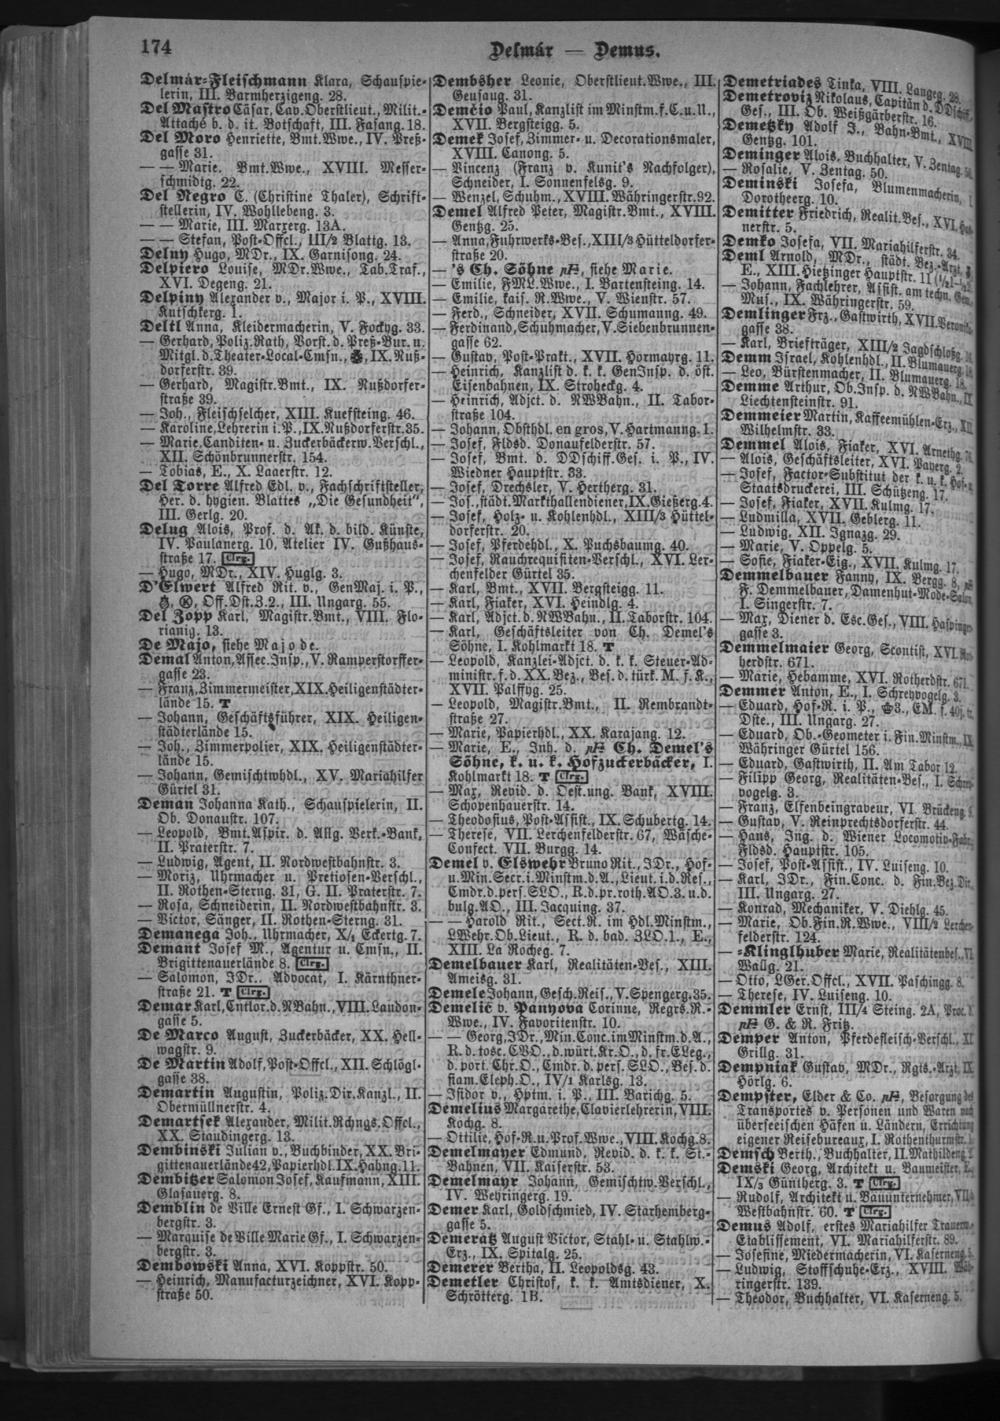 174
Delmár — Demus.
Delmár-Fleischmann Klara, Schauspie-
lerin, III. Barmherzigeng. 28.
Del Mastro Cäsar, Cav. Oberstlieut., Milit.-
Attaché b. d. it. Botschaft, III. Fasang. 18.
Del Moro Henriette, Bmt.Wwe., IV. Preß-
gasse 31.
— — Marie, Bmt.Wwe., XVIII. Messer-
schmidtg. 22.
Del Negro C. (Christine Thaler), Schrift-
stellerin, IV. Wohllebeng. 3.
— — Marie, III. Marxerg. 13A.
— — Stefan, Post-Offcl., III/2 Blattg. 13.
Delny Hugo, MDr., IX. Garnisong. 24.
Delpiero Louise, MDr.Wwe., Tab.Traf.,
XVI. Degeng. 21.
Delpiny Alexander v., Major i. P., XVIII.
Kutschkerg. 1.
Deltl Anna, Kleidermacherin, V. Fockyg. 33.
— Gerhard, Poliz.Rath, Vorst. d. Preß-Bur. u.
Mitgl. d. Theater-Local-Cmsn., IX. Nuß-
dorferstr. 39.
— Gerhard, Magistr.Bmt., IX. Nußdorfer-
straße 39.
— Joh., Fleischselcher, XIII. Kuefsteing. 46.
— Karoline, Lehrerin i. P., IX. Nußdorferstr. 35.
— Marie, Canditen- u. Zuckerbäckerw. Verschl.,
XII. Schönbrunnerstr. 154.
— Tobias, E., X. Laaerstr. 12.
Del Torre Alfred Edl. v., Fachschriftsteller,
Her. d. hygien. Blattes „Die Gesundheit“,
III. Gerlg. 20.
Delug Alois, Prof. d. Ak. d. bild. Künste,
IV. Paulanerg. 10, Atelier IV. Gußhaus-
straße 17. Clrg.
— Hugo, MDr., XIV. Huglg. 3.
D'Elwert Alfred Rit. v., GenMaj. i. P.,
Off. Dst.Z.2., III. Ungarg. 55.
Del Zopp Karl, Magistr.Bmt., VIII. Flo-
rianig. 13.
De Majo, siehe Majode.
Demal Anton, Assec.Insp., V. Ramperstorffer-
gasse 23.
— Franz, Zimmermeister, XIX. Heiligenstädter-
lände 15. T
— Johann, Geschäftsführer, XIX. Heiligen-
städterlände 15.
— Joh., Zimmerpolier, XIX. Heiligenstädter-
lände 15.
— Johann, Gemischtwhdl., XV. Mariahilfer
Gürtel 31.
Deman Johanna Kath., Schauspielerin, II.
Ob. Donaustr. 107.
— Leopold, Bmt.Aspir. d. Allg. Verk.-Bank,
II. Praterstr. 7.
— Ludwig, Agent, II. Nordwestbahnstr. 3.
— Moriz, Uhrmacher u. Pretiosen-Verschl.,
II. Rothen-Sterng. 31, G. II. Praterstr. 7.
— Rosa, Schneiderin, II. Nordwestbahnstr. 3.
— Victor, Sänger, II. Rothen-Sterng. 31.
Demanega Joh., Uhrmacher, X/1 Eckertg. 7.
Demant Josef M., Agentur u. Cmsn., II.
Brigittenauerlände 8. Clrg.
— Salomon, JDr., Advocat, I. Kärnthner-
straße 21. T Clrg.
Demar Karl, Cntlor. d. NBahn., VIII. Laudon-
gasse 5.
De Marco August, Zuckerbäcker, XX. Hell-
wagstr. 9.
De Martin Adolf, Post-Offcl., XII. Schlögl-
gasse 38.
Demartin Augustin, Poliz.Dir.Kanzl., II.
Obermüllnerstr. 4.
Demartsek Alexander, Milit.Rchngs.Offcl.,
XX. Staudingerg. 13.
Dembinski Julian v., Buchbinder, XX. Bri-
gittenauerlände 42, Papierhdl. IX. Hahng. 11.
Dembitzer Salomon Josef, Kaufmann, XIII.
Glasauerg. 8.
Demblin de Ville Ernest Gf., I. Schwarzen-
bergstr. 3.
— Marquise de Ville Marie Gf., I. Schwarzen-
bergstr. 3.
Dembowski Anna, XVI. Koppstr. 50.
— Heinrich, Manufacturzeichner, XVI. Kopp-
straße 50.
Dembsher Leonie, Oberstlieut.Wwe., III.
Geusaug. 31.
Demčio Paul, Kanzlist im Minstm. f. C. u. U.,
XVII. Bergsteigg. 5.
Demek Josef, Zimmer- u. Decorationsmaler,
XVIII. Canong. 5.
— Vincenz (Franz v. Kunit's Nachfolger),
Schneider, I. Sonnenfelsg. 9.
— Wenzel, Schuhm., XVIII. Währingerstr. 92.
Demel Alfred Peter, Magistr.Bmt., XVIII.
Gentzg. 25.
— Anna, Fuhrwerks-Bes., XIII/3 Hütteldorfer-
straße 20.
— 's Ch. Söhne, siehe Marie.
— Emilie, FML.Wwe., I. Bartensteing. 14.
— Emilie, kais. R.Wwe., V. Wienstr. 57.
— Ferd., Schneider, XVII. Schumanng. 49.
— Ferdinand, Schuhmacher, V. Siebenbrunnen-
gasse 62.
— Gustav, Post-Prakt., XVII. Hormayrg. 11.
— Heinrich, Kanzlist d. k. k. GenInsp. d. öst.
Eisenbahnen, IX. Stroheckg. 4.
— Heinrich, Adjct. d. NWBahn., II. Tabor-
straße 104.
— Johann, Obsthdl. en gros, V. Hartmanng. 1.
— Josef, Fldsd. Donaufelderstr. 57.
— Josef, Bmt. d. DDschiff.Ges. i. P., IV.
Wiedner Hauptstr. 33.
— Josef, Drechsler, V. Hertherg. 31.
— Jos., städt. Markthallendiener, IX. Gießerg. 4.
— Josef, Holz- u. Kohlenhdl., XIII/3 Hüttel-
dorferstr. 20.
— Josef, Pferdehdl., X. Puchsbaumg. 40.
— Josef, Rauchrequisiten-Verschl., XVI. Ler-
chenfelder Gürtel 35.
— Karl, Bmt., XVII. Bergsteigg. 11.
— Karl, Fiaker, XVI. Heindlg. 4.
— Karl, Adjct. d. NWBahn., II. Taborstr. 104.
— Karl, Geschäftsleiter von Ch. Demel's
Söhne, I. Kohlmarkt 18. T
— Leopold, Kanzlei-Adjct. d. k. k. Steuer-Ad-
ministr. f. d. XX. Bez., Bes. d. türk. M. f. K.,
XVII. Palffyg. 25.
— Leopold, Magistr.Bmt., II. Rembrandt-
straße 27.
— Marie, Papierhdl., XX. Karajang. 12.
— Marie, E., Inh. d. Ch. Demel's
Söhne, k. u. k. Hofzuckerbäcker, I.
Kohlmarkt 18. T Clrg.
— Max, Revid. d. Oest.ung. Bank, XVIII.
Schopenhauerstr. 14.
— Theodosius, Post-Assist., IX. Schubertg. 14.
— Therese, VII. Lerchenfelderstr. 67, Wäsche-
Confect. VII. Burgg. 14.
Demel v. Elswehr Bruno Rit., JDr., Hof-
u. Min.Secr. i. Minstm. d. A., Lieut. i. d. Res.,
Cmdr. d. pers. SLO., R. d. pr. roth. AO.3. u. d.
bulg. AO., III. Jacquing. 37.
— — Harold Rit., Sect.R. im Hdl.Minstm.,
LWehr.Ob.Lieut., R. d. bad. 3LO.1., E.,
XIII. La Rocheg. 7.
Demelbauer Karl, Realitäten-Bes., XIII.
Ameisg. 31.
Demele Johann, Gesch.Reis., V. Spengerg. 35.
Demelić v. Panyova Corinne, Regrs.R.-
Wwe., IV. Favoritenstr. 10.
— — Georg, JDr., Min.Conc. im Minstm. d. A.,
R. d. tosc. CVO., d. würt. Kr.O., d. fr. ELeg.,
d. port. Chr.O., Cmdr. d. pers. SLO., Bes. d.
siam. Eleph.O., IV/1 Karlsg. 13.
— Isidor v., Hptm. i. P., III. Barichg. 5.
Demelius Margarethe, Clavierlehrerin, VIII.
Kochg. 8.
— Ottilie, Hof-R. u. Prof.Wwe., VIII. Kochg. 8.
Demelmayer Edmund, Revid. d. k. k. St.-
Bahnen, VII. Kaiserstr. 53.
Demelmayr Johann, Gemischtw.Verschl.,
IV. Weyringerg. 19.
Demer Karl, Goldschmied, IV. Starhemberg-
gasse 5.
Demeratz August Victor, Stahl- u. Stahlw.-
Erz., IX. Spitalg. 25.
Demerer Bertha, II. Leopoldsg. 43.
Demetler Christof, k. k. Amtsdiener, X.
Schrötterg. 1B.
Demetriades Tinka, VIII. Langeg. 28.
Demetrovič Nikolaus, Capitän d. DDschiff.
Ges., III. Ob. Weißgärberstr. 16.
Demetzky Adolf J., Bahn-Bmt., XVIII.
Gentzg. 101.
Deminger Alois, Buchhalter, V. Zentag. 50.
— Rosalie, V. Zentag. 50.
Deminski Josefa, Blumenmacherin, I.
Dorotheerg. 10.
Demitter Friedrich, Realit.Bes., XVI.
nerstr. 5.
Demko Josefa, VII. Mariahilferstr. 34.
Deml Arnold, MDr., städt. Bez.-Arzt,
E., XIII. Hietzinger Hauptstr. 11
— Johann, Fachlehrer, Assist. am techn. Gew.
Mus., IX. Währingerstr. 59.
Demlinger Frz., Gastwirth, XVII. Veronika-
gasse 38.
— Karl, Briefträger, XIII/2 Jagdschloßg.
Demm Israel, Kohlenhdl., II. Blumauerg. 18.
— Leo, Bürstenmacher, II. Blumauerg. 18.
Demme Arthur, Ob.Insp. d. NWBahn., IX.
Liechtensteinstr. 91.
Demmeier Martin, Kaffeemühlen-Erz., XII.
Wilhelmstr. 33.
Demmel Alois, Fiaker, XVI. Arnethg.
— Alois, Geschäftsleiter, XVI. Payerg. 2.
— Josef, Factor-Substitut der k. u. k. Hof- u.
Staatsdruckerei, III. Schützeng. 17.
— Josef, Fiaker, XVII. Kulmg. 17.
— Ludmilla, XVII. Geblerg. 11.
— Ludwig, XII. Ignazg. 29.
— Marie, V. Oppelg. 5.
— Sofie, Fiaker-Eig., XVII. Kulmg. 17.
Demmelbauer Fanny, IX. Bergg. 8,
F. Demmelbauer, Damenhut-Mode-Salon,
I. Singerstr. 7.
— Max, Diener d. Esc.Ges., VIII. Haspinger-
gasse 3.
Demmelmaier Georg, Scontist, XVI. Ro-
therdstr. 671.
— Marie, Hebamme, XVI. Rotherdstr. 671.
Demmer Anton, E., I. Schreyvogelg. 3.
— Eduard, Hof-R. i. P., EM. f. 40j. tr.
Dste., III. Ungarg. 27.
— Eduard, Ob.-Geometer i. Fin.Minstm., IX.
Währinger Gürtel 156.
— Eduard, Gastwirth, II. Am Tabor 12.
— Filipp Georg, Realitäten-Bes., I. Schrey-
vogelg. 3.
— Franz, Elfenbeingraveur, VI. Brückeng.
— Gustav, V. Reinprechtsdorferstr. 44.
— Hans, Ing. d. Wiener Locomotiv-Fabr.,
Fldsd. Hauptstr. 105.
— Josef, Post-Assist., IV. Luiseng. 10.
— Karl, JDr., Fin.Conc. d. Fin.Bez.Dir.,
III. Ungarg. 27.
— Konrad, Mechaniker, V. Diehlg. 45.
— Marie, Ob.Fin.R.Wwe., VIII/2 Lerchen-
felderstr. 124.
— -Klinglhuber Marie, Realitätenbes., VI.
Wallg. 21.
— Otto, LGer.Offcl., XVII. Paschingg. 8.
— Therese, IV. Luiseng. 10.
Demmler Ernst, III/4 Steing. 2A, Proc.
G. & R. Fritz.
Demper Anton, Pferdefleisch-Verschl., XI.
Grillg. 31.
Dempniak Gustav, MDr., Rgts.-Arzt, IX.
Hörlg. 6.
Dempster, Elder & Co., Besorgung des
Transportes v. Personen und Waren nach
überseeischen Häfen u. Ländern, Errichtung
eigener Reisebureaux, I. Rothenthurmstr.
Demsch Berth., Buchhalter, II. Mathildeng.
Demski Georg, Architekt u. Baumeister,
IX/3 Güntherg. 3. T Clrg.
— Rudolf, Architekt u. Bauunternehmer, VII.
Westbahnstr. 60. T Clrg.
Demus Adolf, erstes Mariahilfer Trauerw.-
Etablissement, VI. Mariahilferstr. 89.
— Josefine, Miedermacherin, VI. Kaserneng. 5.
— Ludwig, Stoffschuhe-Erz., XVIII. Wäh-
ringerstr. 139.
— Theodor, Buchhalter, VI. Kaserneng. 5.